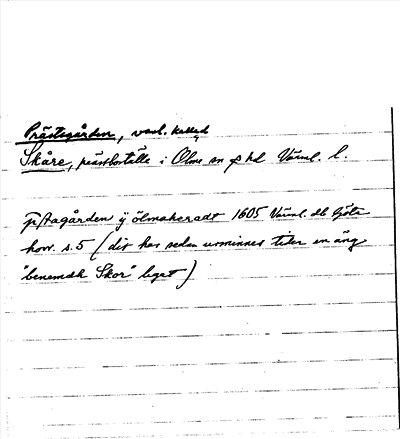 Prästgården, vanl. kallad
Skåre, prästboställe i Ölme sn o hd Värml. l.
pstagården ÿ ölmaheradt 1605 Värml. db Göta
hovr. s. 5 (där har sedan urminnes tider en äng
"benemdh Skor" leget)